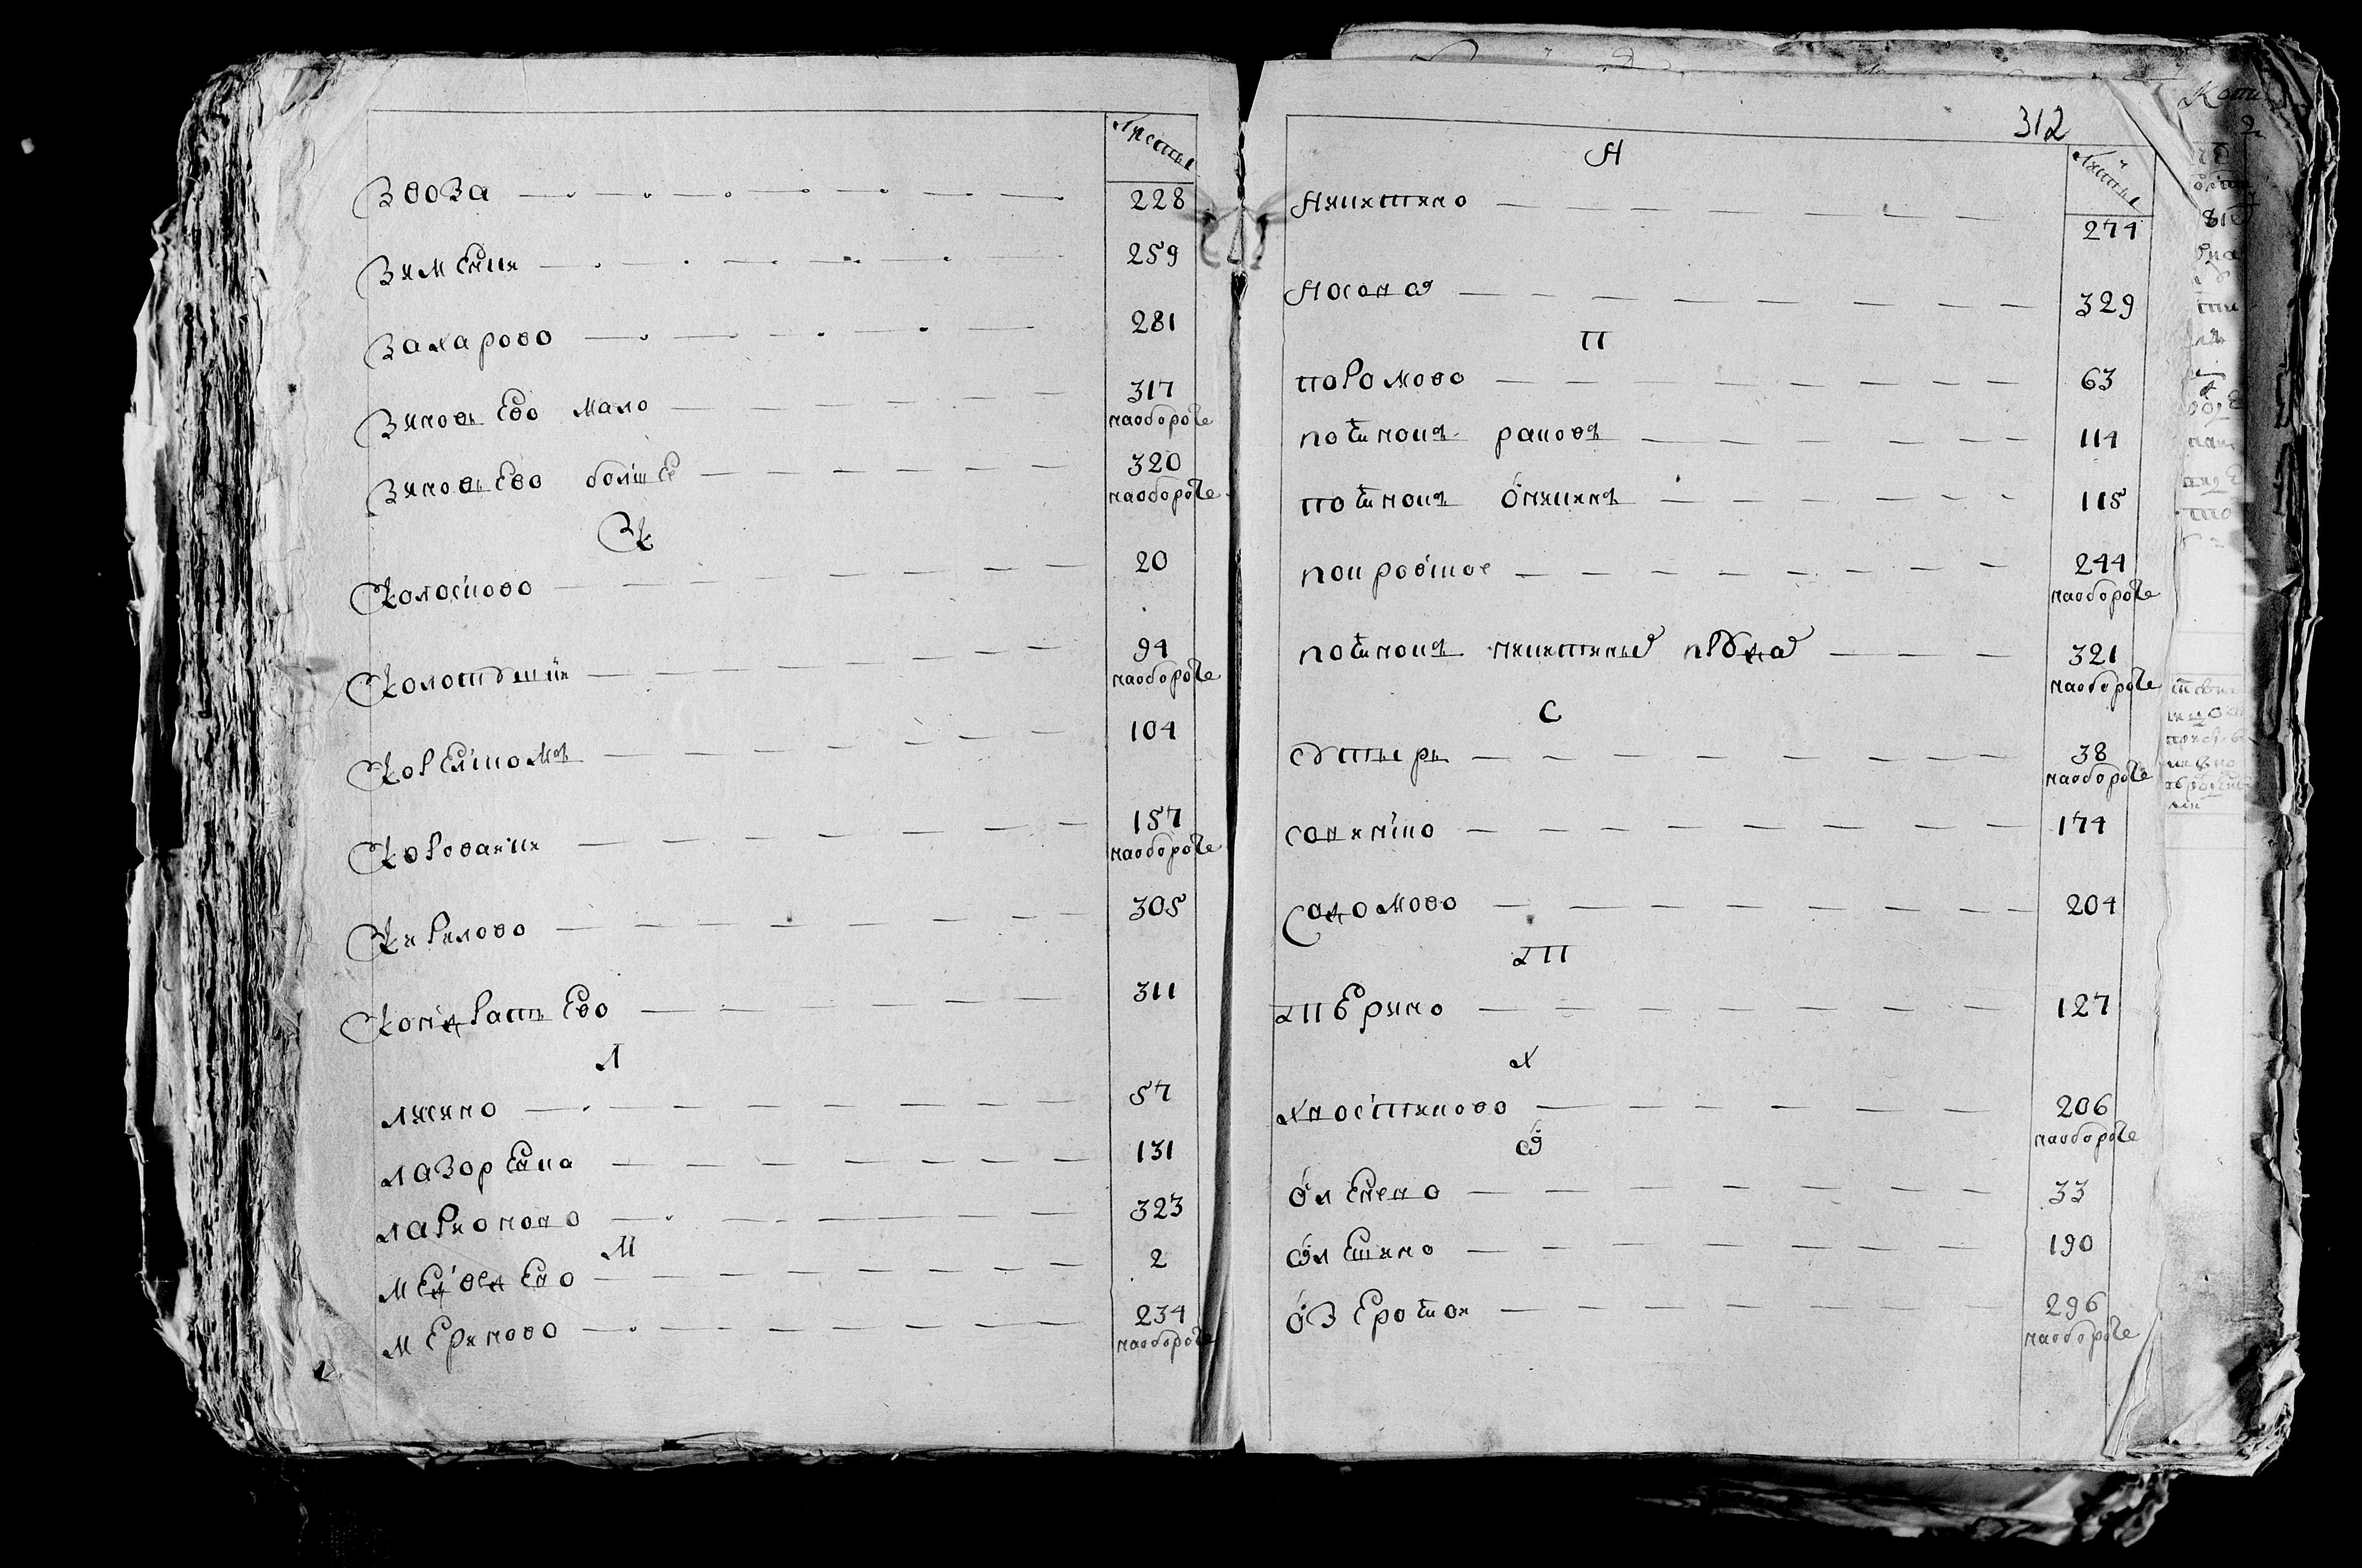 листы
Звоза 228
Зименки 259
Захарово 281
Зиновьево мало 317
наобороте
Зиновьево болшее 320
наобороте
К
Колосково 20
Колотушки 94
наобороте
Корелкомъ 104
Корованки 157
наобороте
Кирилово 305
Кондратьево 311
Л
Лисино 57
Лазоренка 131
Ларионово 323
М
Медведево 2
Мериново 234
наобороте
312
листы
Н
Никитино 274
Носоной 329
П
Поромово 63
Починокъ раковъ 114
Починокъ оникинъ 115
Покровское 244
наобороте
Починокъ никитиной прудной 321
наобороте
С
Сутырь 38
наобороте
Сонинко 174
Содомово 204
Т
Тверино 127
Х
Хвостиково 206
наобороте
О
Оленено 33
Олешино 190
Озерочки 296
наобороте